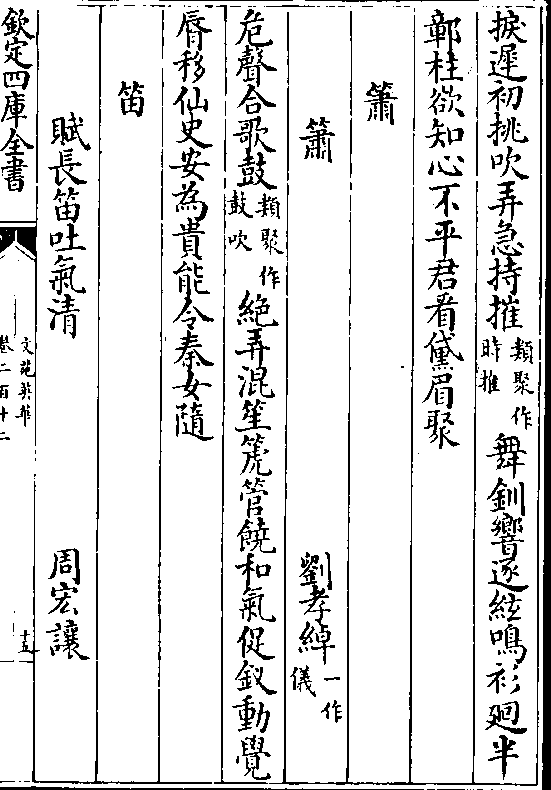 捩遲初挑吹弄急持摧類聚作時推舞釧響逐絃鳴衫廻半
鄣柱欲知心不平君看黛眉聚
簫
簫 劉孝綽一作儀
危聲合歌鼓類聚作鼓吹絶弄混笙篪管饒和氣促釵動覺
脣移仙史安為貴能令秦女隨
笛
賦長笛吐氣清 周宏讓
欽定四庫全書
文苑英華
卷二百十二
十五